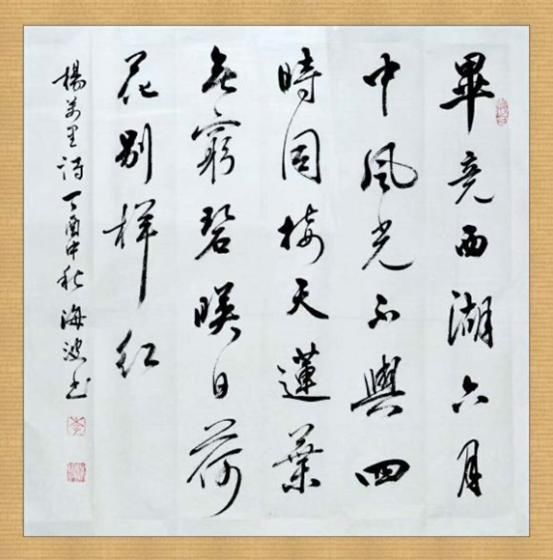 畢竟西湖六月
中風光不與四
時同接天蓮葉
無窮碧映日荷
花別樣紅
楊萬里詩丁酉中秋海波書
李